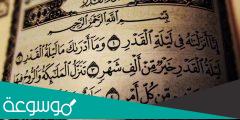 بِسْمِ اللَّهِ الرَّحْمَٰنِ الرَّحِيمِ
إِنَّا أَنزَلْنَاهُ فِي لَيْلَةِ الْقَدْرِ ١ وَمَا أَدْرَاكَ مَا لَيْلَةُ الْقَدْرِ ٢
لَيْلَةُ الْقَدْرِ خَيْرٌ مِّنْ أَلْفِ شَهْرٍ ٣ تَنَزَّلُ الْمَلَائِكَةُ وَالرُّوحُ فِيهَا
مِّن كُلِّ أَمْرٍ
موسوعة